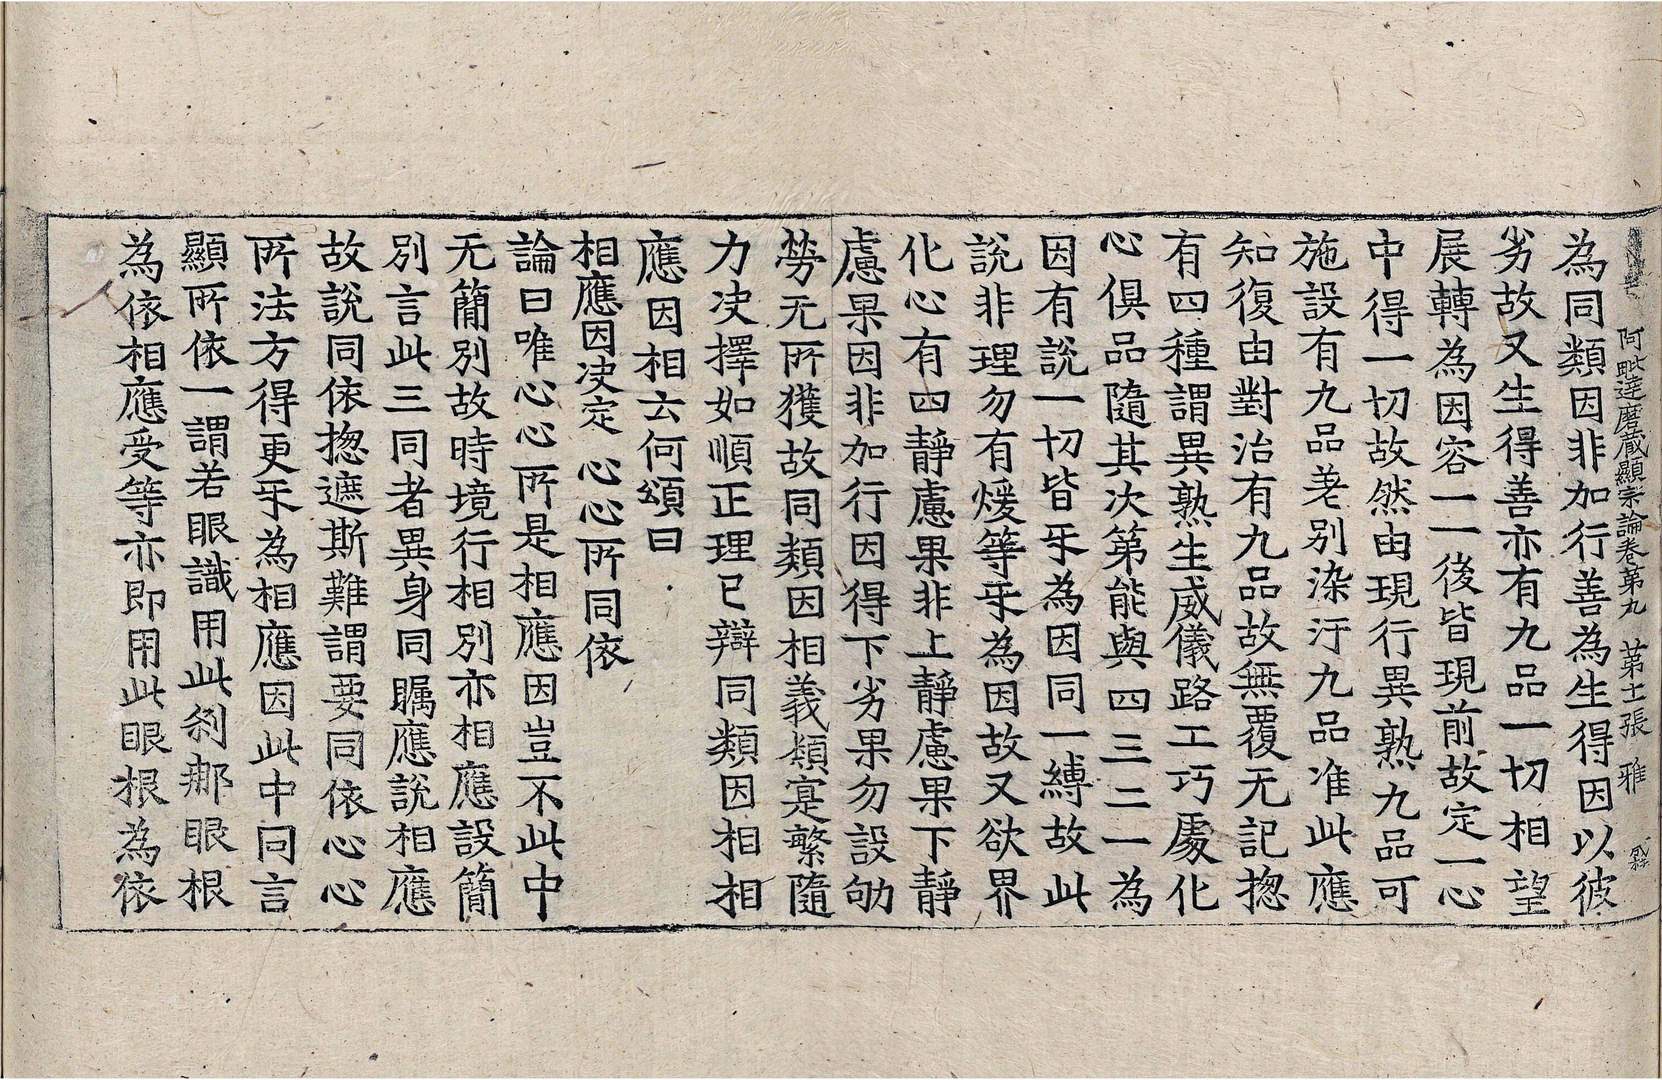 阿毗達磨藏顯宗論卷第九　苐十一張　雅
為同類因非加行善為生得因以彼
劣故又生得善亦有九品一切相望
展轉為因容一一後皆現前故定一心
中得一切故然由現行異熟九品可
施設有九品差别染汙九品准此應
知復由對治有九品故無覆无記揔
有四種謂異熟生威儀路工巧處化
心俱品隨其次第能與四三二一為
因有說一切皆㸦為因同一縛故此
說非理勿有煖等㸦為因故又欲界
化心有四靜慮果非上靜慮果下靜
慮果因非加行因得下劣果勿設劬
勞无所獲故同類因相義類寔繁隨
力决擇如順正理已辯同類因相相
應因相云何頌曰
相應因决定　心心所同依
論曰唯心心所是相應因豈不此中
无簡別故時境行相別亦相應設簡
別言此三同者異身同矚應說相應
故說同依揔遮斯難謂要同依心心
所法方得更㸦為相應因此中同言
顯所依一謂若眼識用此刹那眼根
為依相應受等亦即用此眼根為依